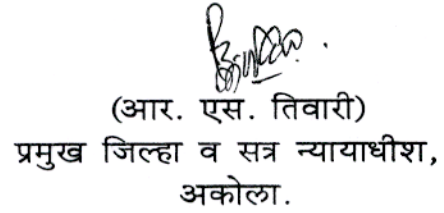 (आर. एस. तिवारी)
प्रमुख जिल्हा व सत्र न्यायाधीश,
अकोला.